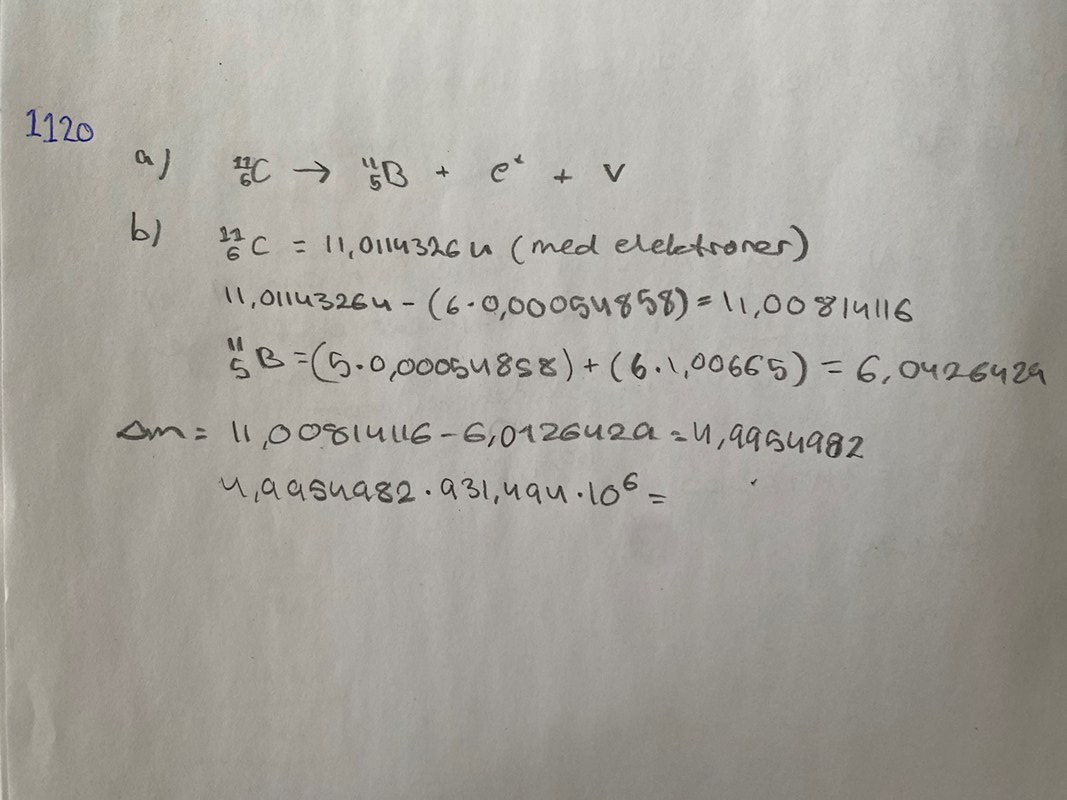 1120
a) ¹¹₆C → ¹¹₅B + e⁺ + ν
b) ¹¹₆C = 11,0114326u (med elektroner)
11,0114326u - (6·0,00054858) = 11,00814116
¹¹₅B = (5·0,00054858) + (6·1,00665) = 6,0426429
Δm = 11,00814116 - 6,0126429 = 4,9954982
4,9954982 · 931,494 · 10⁶ =